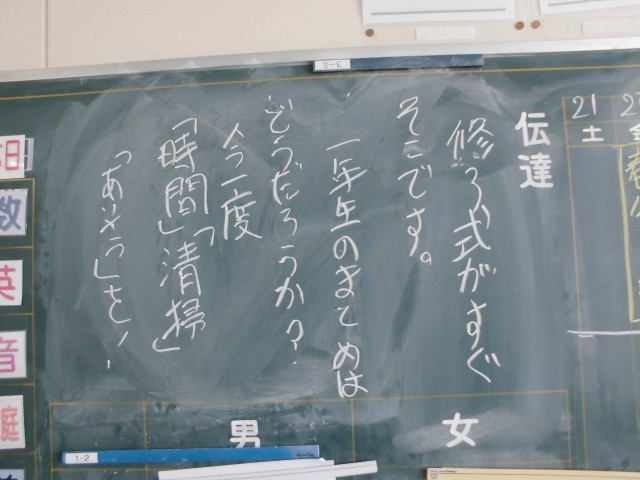 21
土
伝達
修了式がすぐ
そこです。
一年生のまとめは
どうだろうか?
今一度
「時間」「清掃」
「あいさつ」を!
女
男
数
英
音
庭
1-2